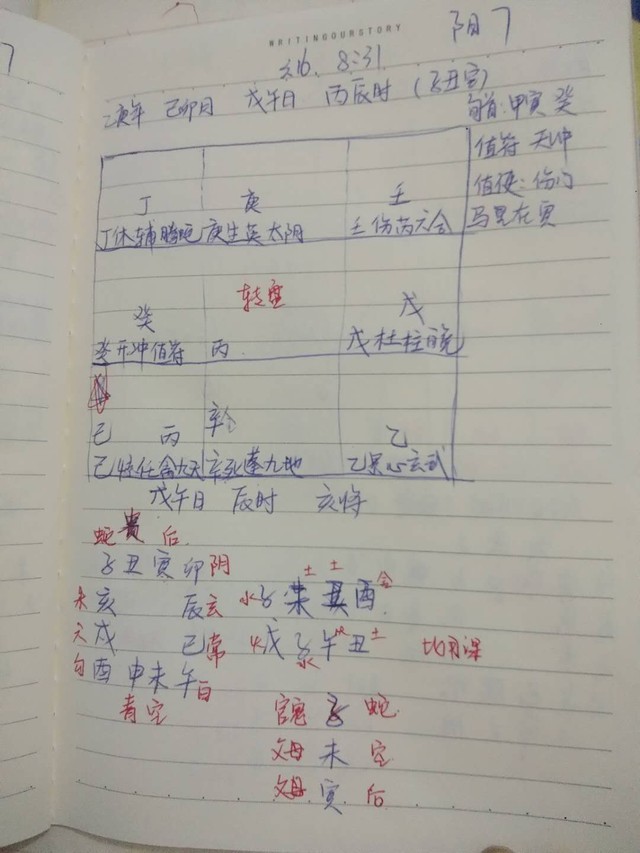 WRITINGOURSTORY
阳7
3.16. 8:31
庚年 己卯月 戊午日 丙辰时 (子丑空)
旬首:甲寅 癸
值符 天冲
值使:伤门
马星在寅
丁 庚 壬
丁休辅腾蛇 庚生英太阴 壬伤芮六合
癸 转盘 戊
癸开冲值符 丙 戊杜柱白虎
己 丙 辛 乙
己惊任禽九天 辛死蓬九地 乙景心玄武
戊午日 辰时 亥将
蛇 贵 后
子丑寅卯阴 土 土
亥 辰玄 水子 未 丑 酉 金
天戌 巳常 火戌 子 午 丑 土
水 火
勾酉 申未午白
青空
官鬼 子 蛇
父母 未 空
父母 寅 后